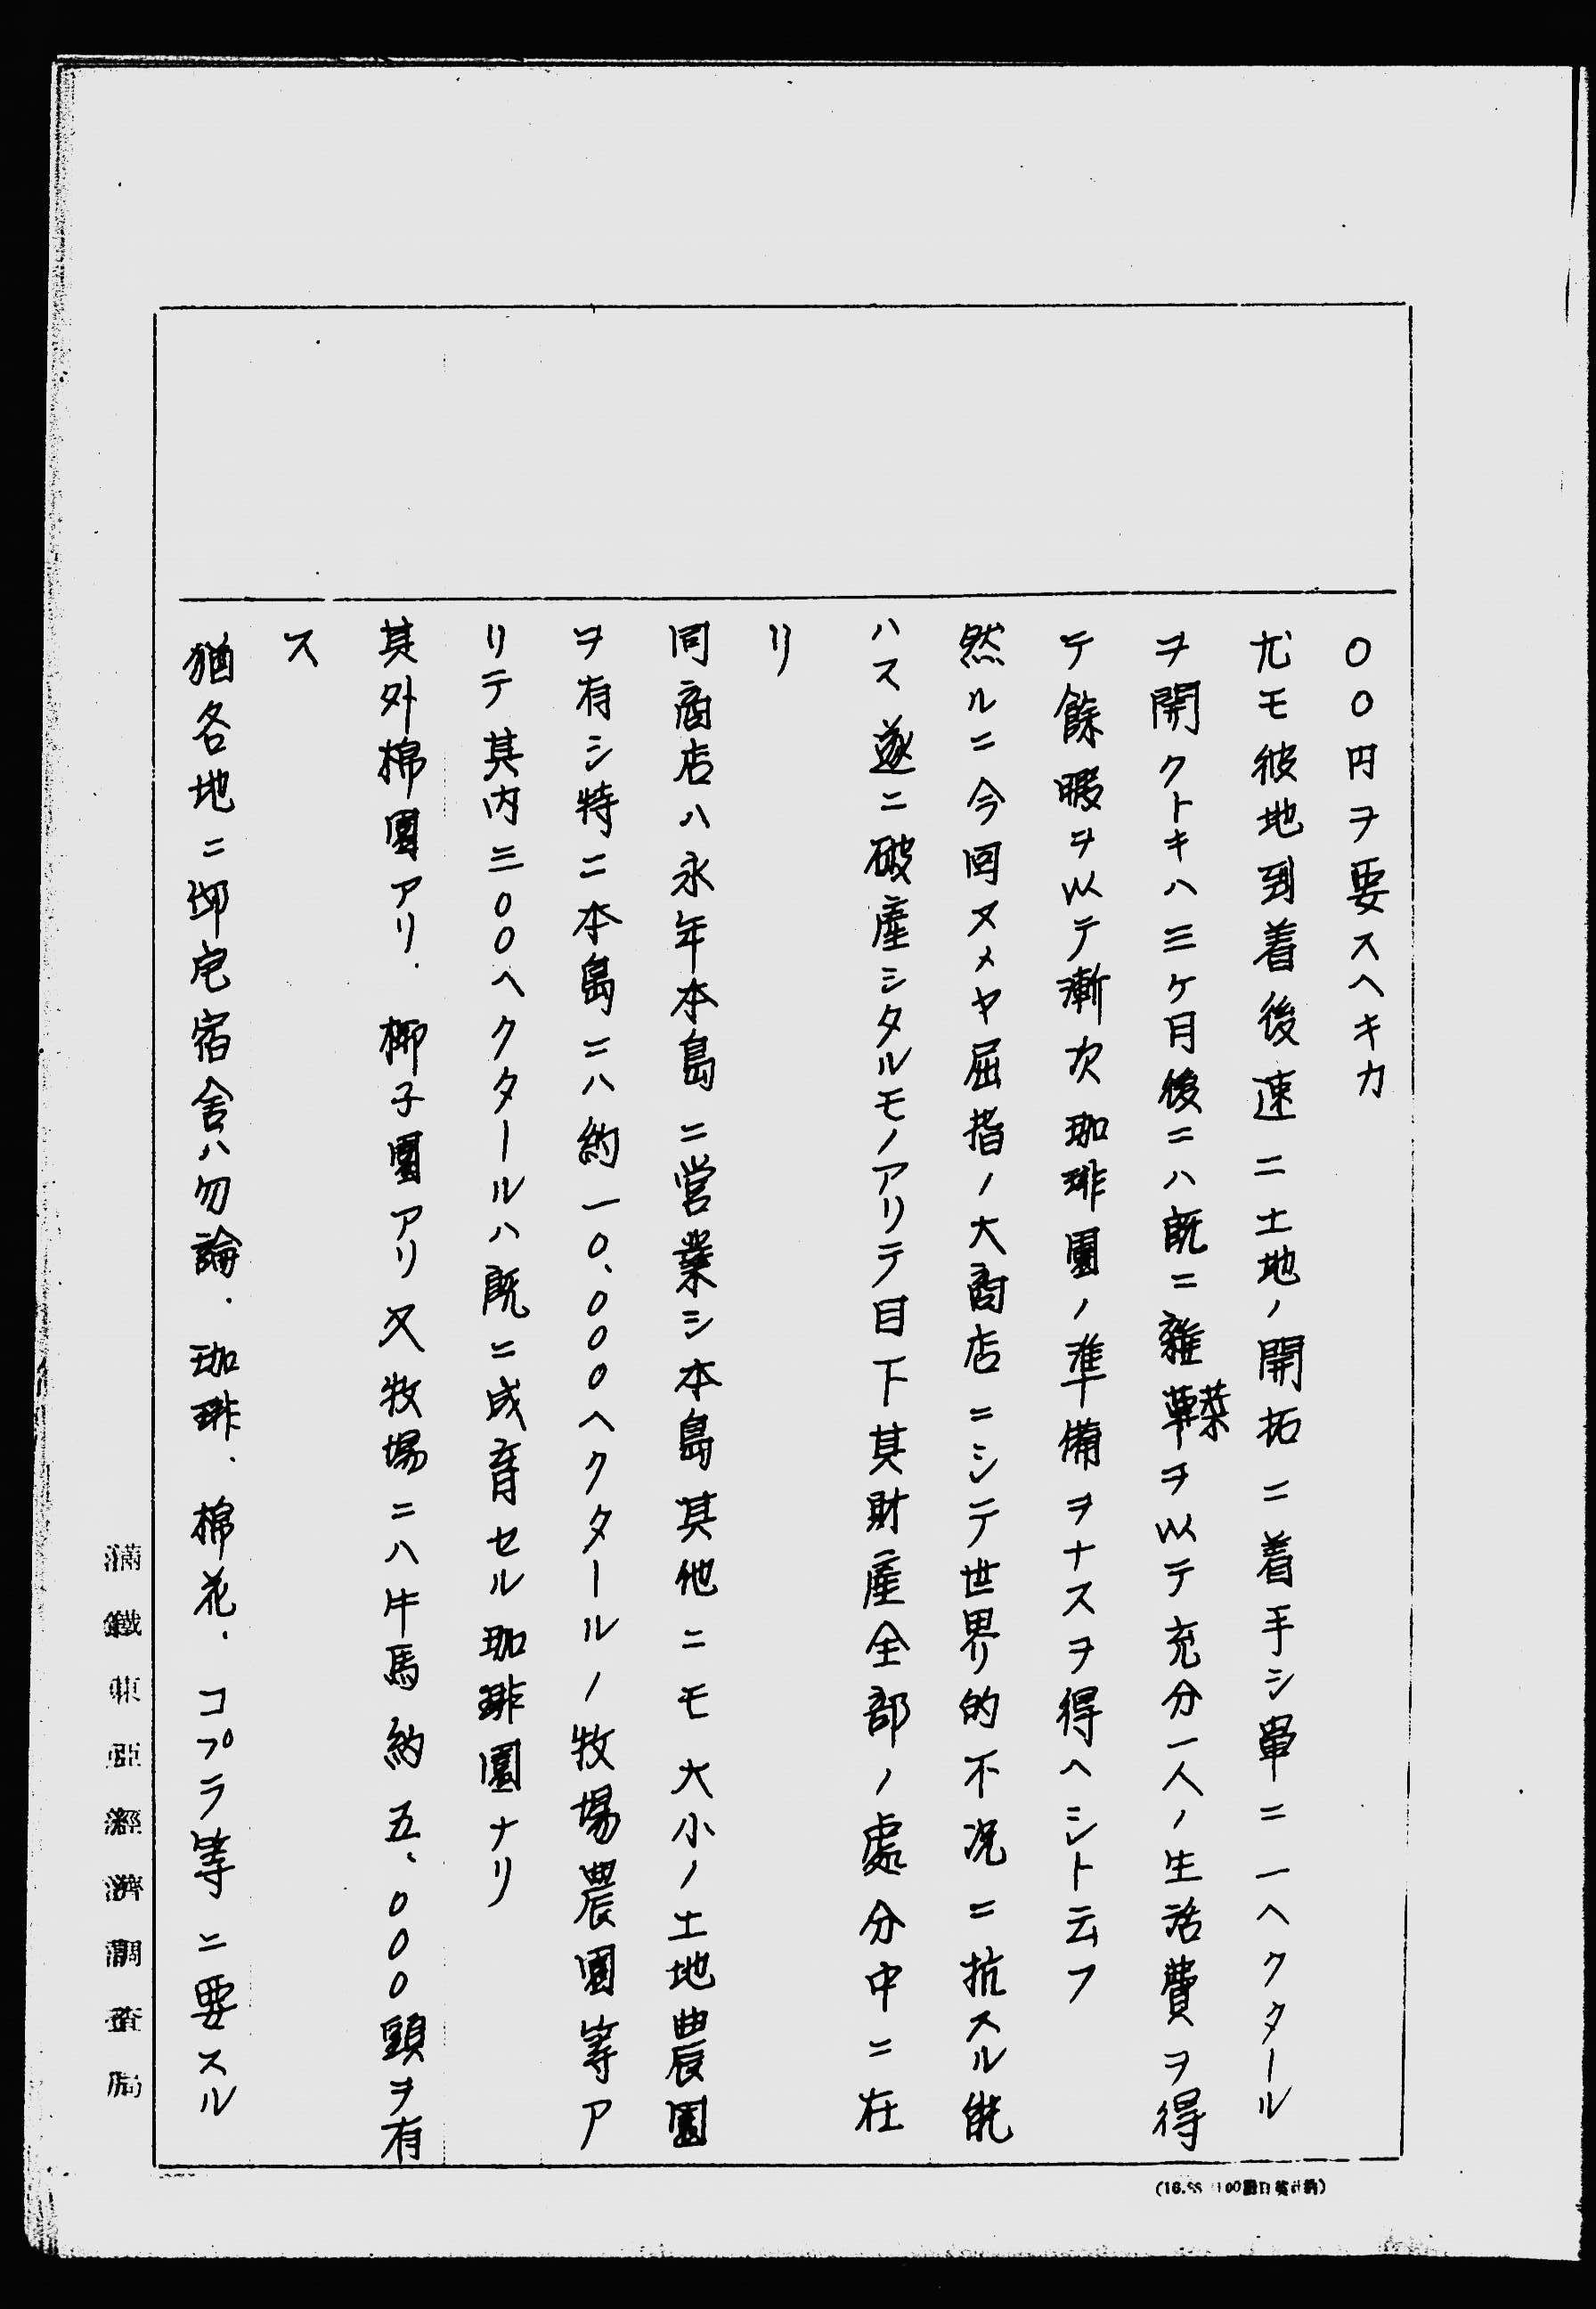 〇〇円ヲ要スヘキカ
尤モ彼地到着後速ニ土地ノ開拓ニ着手シ単ニ一ヘクタール
ヲ開クトキハ三ケ月後ニハ既ニ雑菜ヲ以テ充分一人ノ生活費ヲ得
テ餘暇ヲ以テ漸次珈琲園ノ準備ヲナスヲ得ヘシト云フ
然ルニ今回ヌメヤ屈指ノ大商店ニシテ世界的不況ニ抗スル能
ハス遂ニ破産シタルモノアリテ目下其財産全部ノ處分中ニ在
リ
同商店ハ永年本島ニ営業シ本島其他ニモ大小ノ土地農園
ヲ有シ特ニ本島ニハ約一〇、〇〇〇ヘクタールノ牧場農園等ア
リテ其内三〇〇ヘクタールハ既ニ成育セル珈琲園ナリ
其外棉園アリ、椰子園アリ又牧場ニハ牛馬約五、〇〇〇頭ヲ有
ス
猶各地ニ邸宅宿舎ハ勿論、珈琲、棉花、コプラ等ニ要スル
満鐵東亞經濟調査局